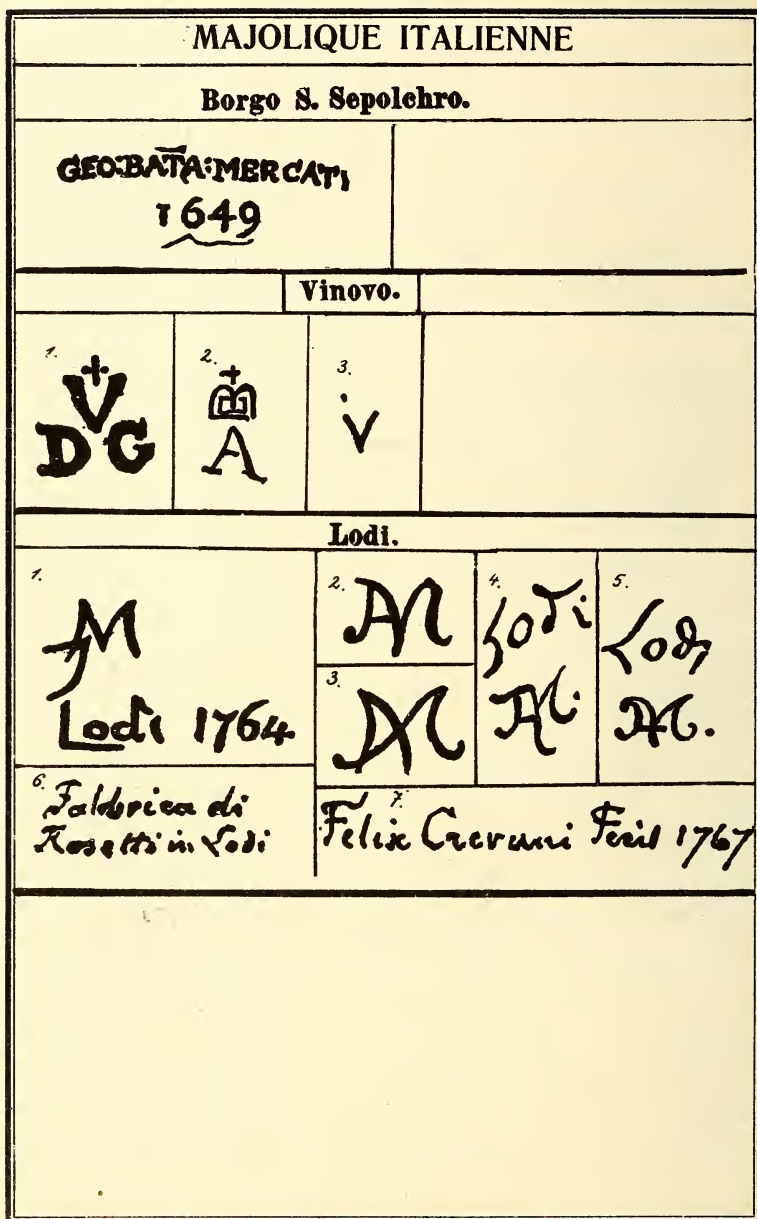 MAJOLIQUE ITALIENNE
Borgo S. Sepolchro.
GEO:BATA:MERCATI
1649
Vinovo.
1.
V
DG
2.
B
A
3.
V
Lodi.
1.
Lodi 1764
2.
3.
4.
Lodi
5.
Lodi
6.
Fabbrica di
Rosetti in Lodi
7.
Felix 1767